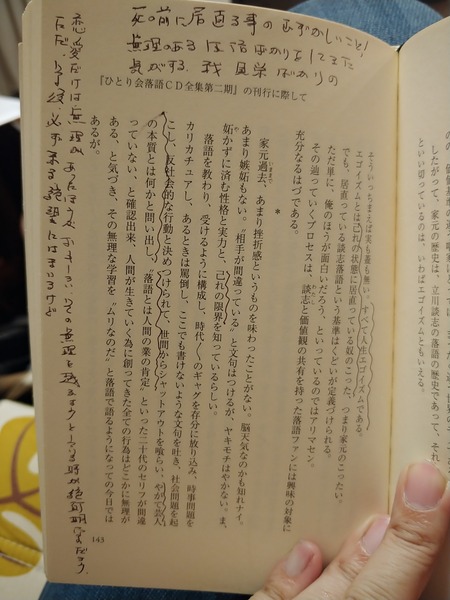 死の前に居直る事のむずかしいこと!
無理のある生活ばかりをしてきた
気がする、我 見栄ばかりの
『ひとり会落語CD全集第二期』の刊行に際して
したがって、家元の歴史は、立川談志の落語の歴史であって、それ
といい切っているのは、いわばエゴイズムともいえる。
エ、いっちまえば実も蓋も無い。すべて人生エゴイズムである。
エゴイズムとは己れの状態に居直っている奴のこった、つまり家元のこったい。
でも、居直っている談志落語という基準はくといが定義づけられる。
ただ単に、俺のほうが面白いだろう、といっているのではアリマセン。
その辿っていくプロセスは、談志と価値観の共有を持った落語ファンには興味の対象に
充分なるはづである。
*
家元過去、あまり挫折感というものを味わったことがない。脳天気なのかも知れナイ。
いままで
あまり嫉妬もない。〝相手が間違っている〟と文句はつけるが、ヤキモチはやかない。ま、
妬かずに済む性格と実力と、己れの限界を知っているらしい。
落語を教わり、受けるように構成し、時代〱のギャグを存分に放り込み、時事問題を
カリカチュアし、あるときは罵倒し、ここでも書けないような文句を吐き、社会問題を起
こし、反社会的な行動と決めつけられて、世間からシャットアウトを喰らい、やがて芸人
の本質とは何かと問い出し、〝落語とは人間の業の肯定〟といった二十代のセリフが間違
っていない、と確認出来、人間が生きていく為に創ってきた全ての行為はどこかに無理が
ある、と気づき、その無理な学習を〝ムリなのだ〟と落語で語るようになっての今日では
あるが。
恋愛だけは無理があったほうが
その無理を
ただ、少し後、必ず来る絶望にはまいるけど
143